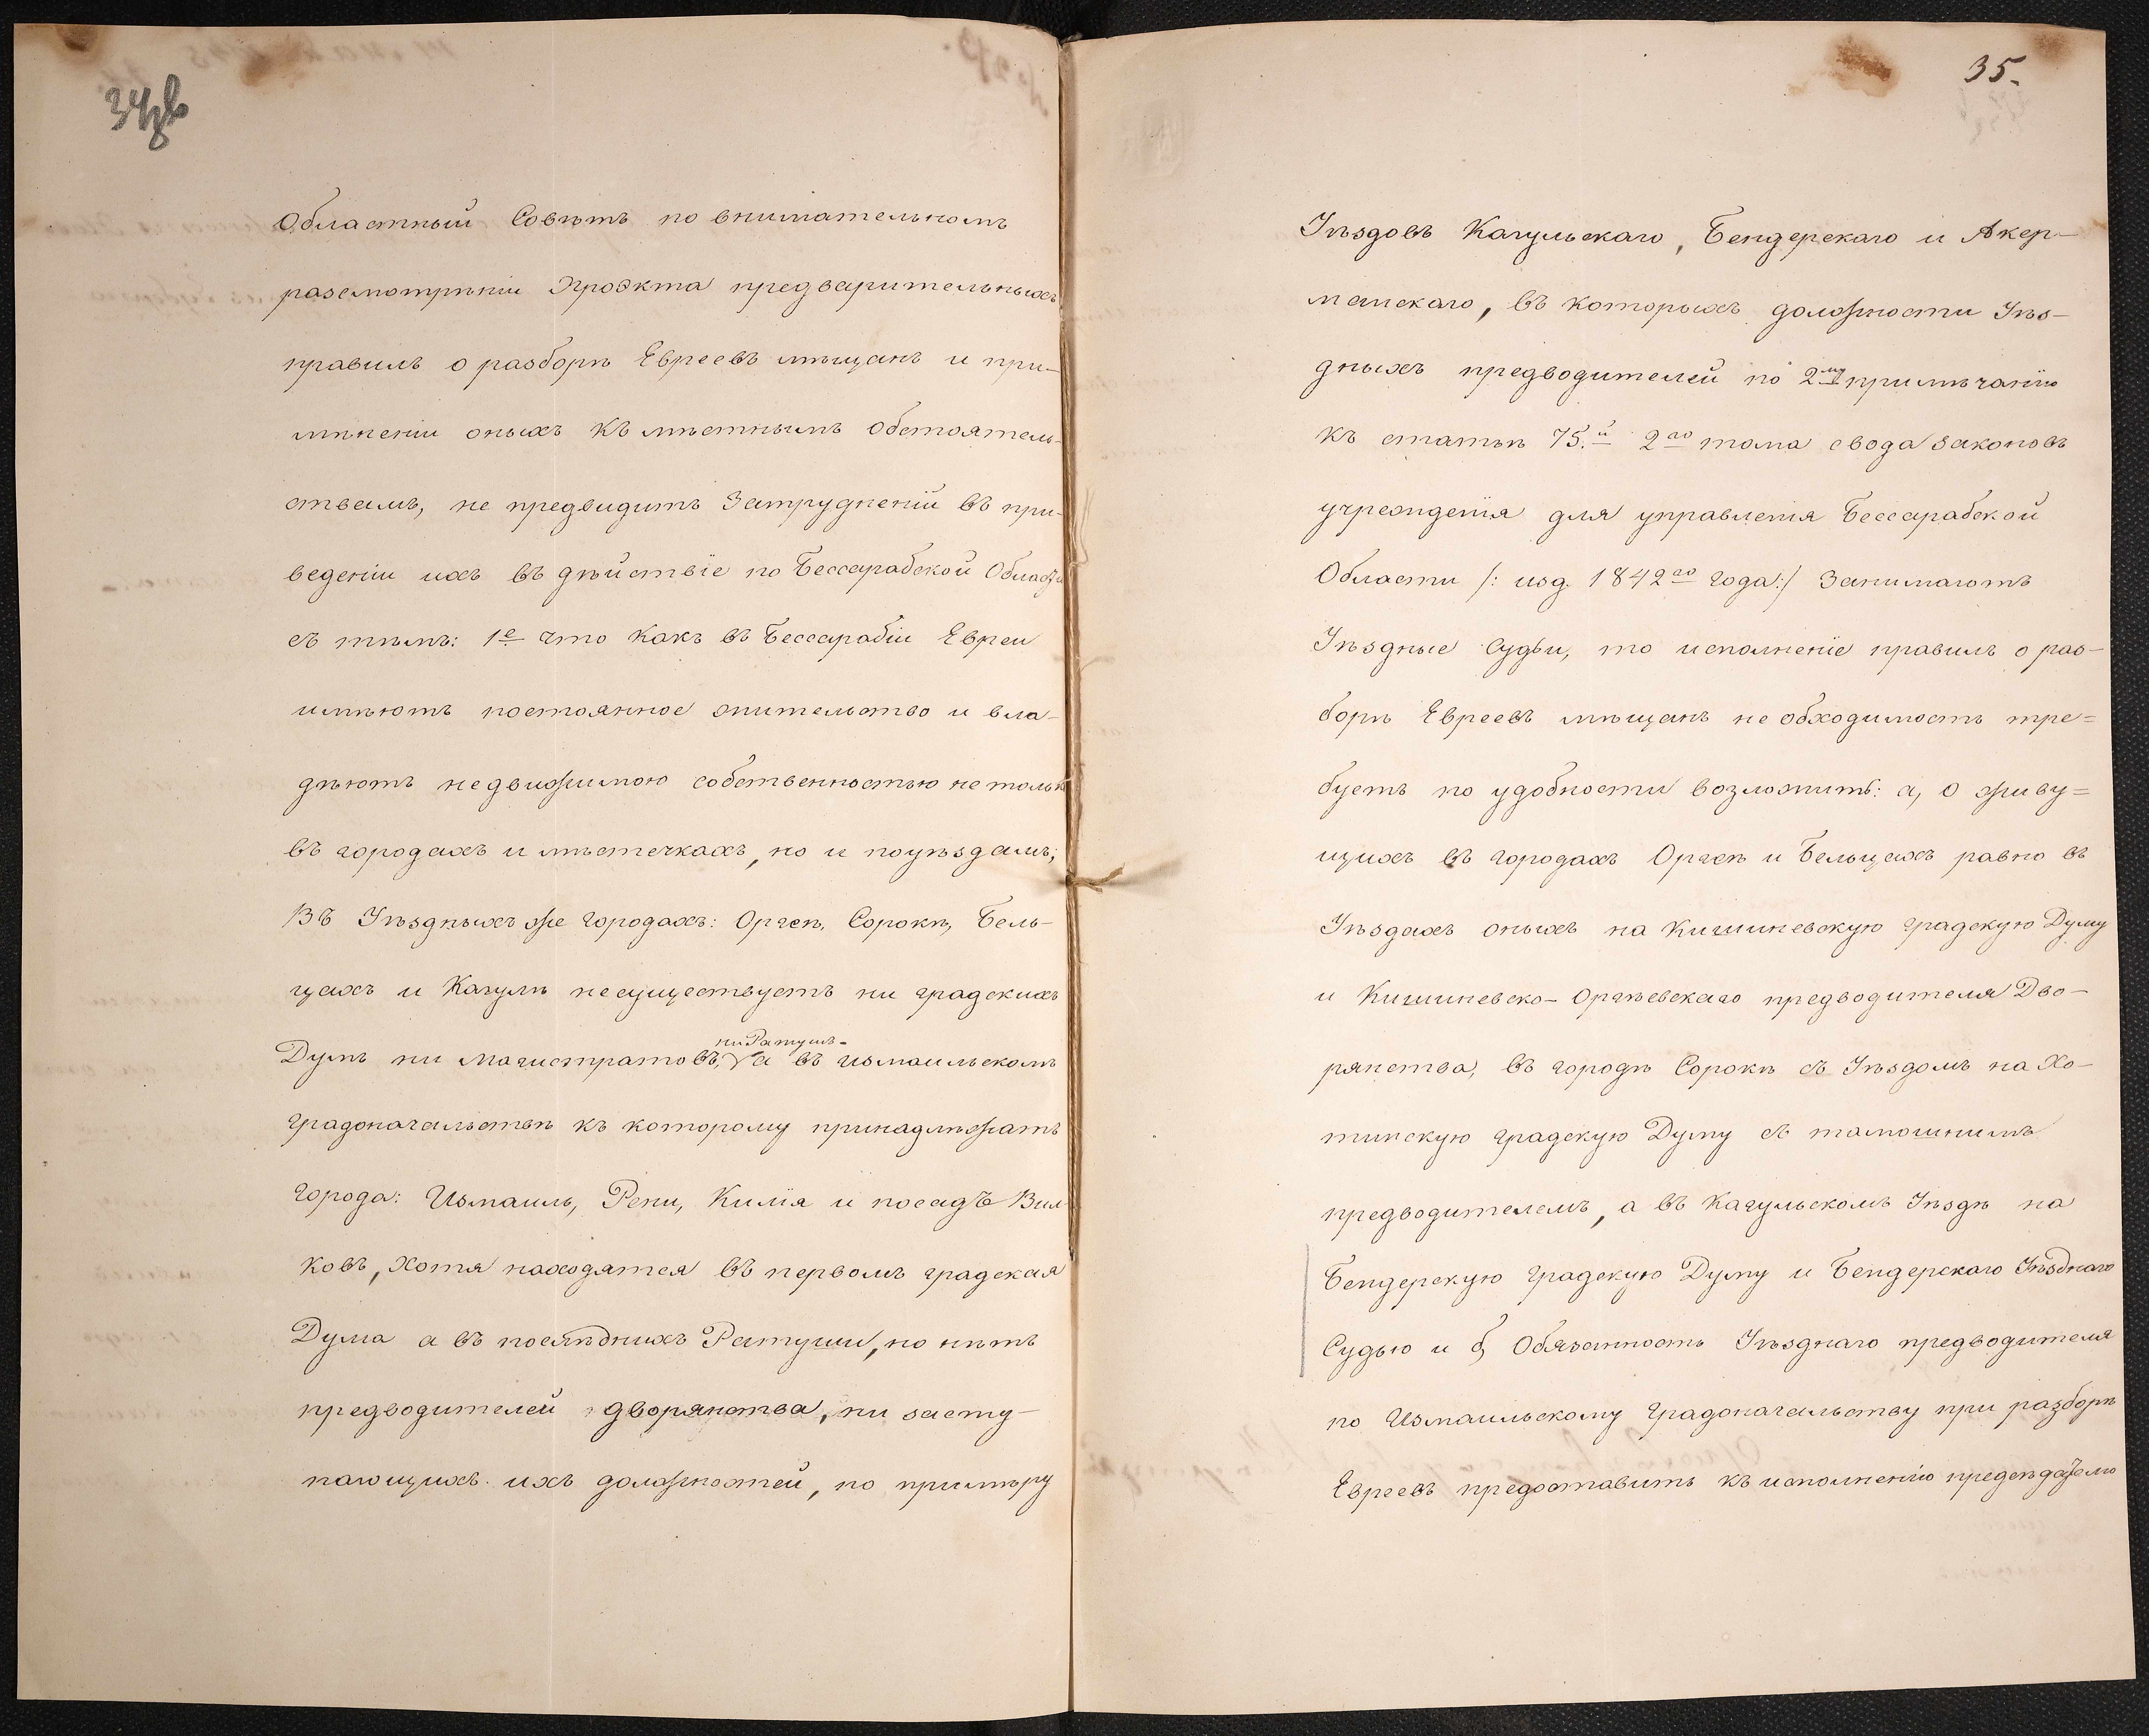 34об
Областный Совѣтъ по внимательномъ
разсмотрѣніи Проэкта предварительныхъ
правилъ о разборѣ Евреевъ мѣщанъ и при-
мѣненіи оныхъ къ мѣстнымъ обстоятель-
ствамъ, не предвидитъ затрудненій въ при-
веденіи ихъ въ дѣйствіе по Бессарабской Области
съ тѣмъ: 1е что какъ въ Бессарабіи Евреи
имѣютъ постоянное жительство и вла-
дѣютъ недвижимою собственностью не только
въ городахъ и мѣстечкахъ, но и поуѣздамъ;
Въ Уѣздныхъ же городахъ: Оргеѣ, Сорокѣ, Бель-
цахъ и Кагулѣ несуществуетъ ни градскихъ
ни Ратушъ-
Думъ ни Магистратовъ, а въ Измаильскомъ
градоначальствѣ къ которому принадлѣжатъ
города: Измаилъ, Рени, Килія и посадъ Вил-
ковъ, хотя находятся въ первомъ градская
Дума а въ послѣднихъ Ратуши, но нѣтъ
предводителей дворянства, ни засту-
пающихъ ихъ должностей, по примѣру
35.
Уѣздовъ Кагульскаго, Бендерскаго и Акер-
манскаго, въ которыхъ должности Уѣз-
дныхъ предводителей по 2му примѣчанію
къ статьѣ 75.й 2го тома свода законовъ
учрежденія для управленія Бессарабской
Области /: изд. 1842го года:/ занимаютъ
Уѣздные Судьи, то исполненіе правилъ о раз-
борѣ Евреевъ мѣщанъ не обходимость тре=
буетъ по удобности возложить: а, о живу=
щихъ въ городахъ Оргеѣ и Бельцахъ равно въ
Уѣздахъ оныхъ на Кишиневскую градскую Думу
и Кишиневско-Оргѣевскаго предводителя Дво-
рянства, въ городѣ Сорокѣ съ Уѣздомъ на Хо-
тинскую градскую Думу съ тамошнимъ
предводителемъ, а въ Кагульскомъ Уѣздѣ на
Бендерскую градскую Думу и Бендерскаго Уѣзднаго
Судью и б, Обязанность Уѣзднаго предводителя
по Измаильскому градоначальству при разборѣ
Евреевъ предоставить къ исполненію предсѣдателю